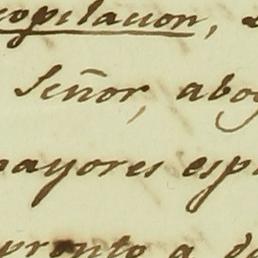 copilacion,
Señor, abog
mayores esp
pronto a